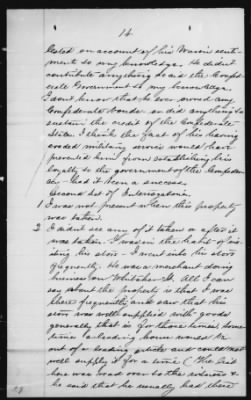 14
lested on account of his Union senti-
ments to my knowledge. He did not
contribute anything to aid the Confed-
erate Government to my knowledge.
I dont know that he ever owned any
Confederate bonds or did anything to
sustain the credit of the Confederate
States. I think the fact of his having
evaded military service would have
prevented him from establishing his
loyalty to the government of the Confeder-
acy had it been a success.
Second set of Interrogatories.
1 I was not present when this property
was taken.
2 I didnt see any of it taken or after it
was taken. I was in the habit of vis-
iting his store - I went into his store
frequently. He was a merchant doing
business on Whitaker St. All I can
say about the property is that I was
there frequently and saw that his
store was well supplied with goods
generally that is for those times. Some
times a leading house would be
out of a leading article and could not
well supply it for a time (The
here was
he said that he usually had there